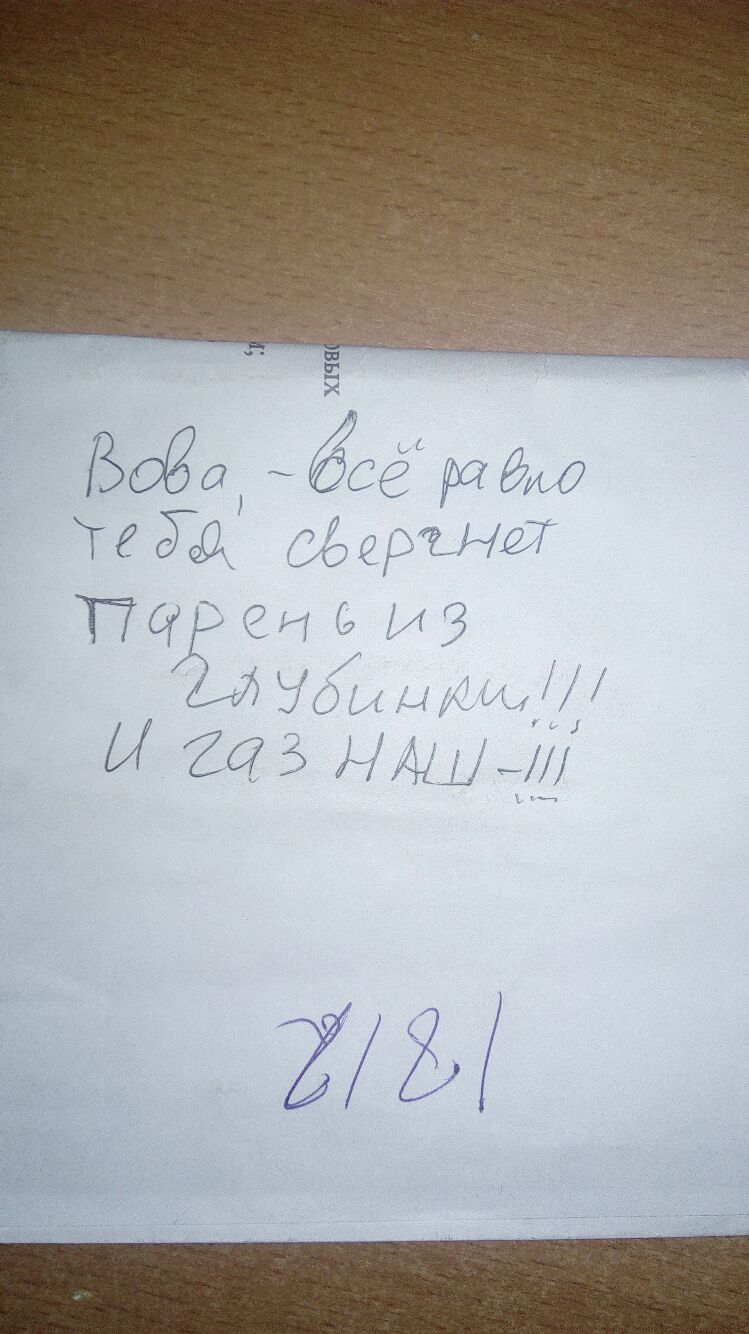 овых
и;
Вова, - всё равно
тебя свергнет
Парень из
глубинки!!!
И газ НАШ-!!!
2181